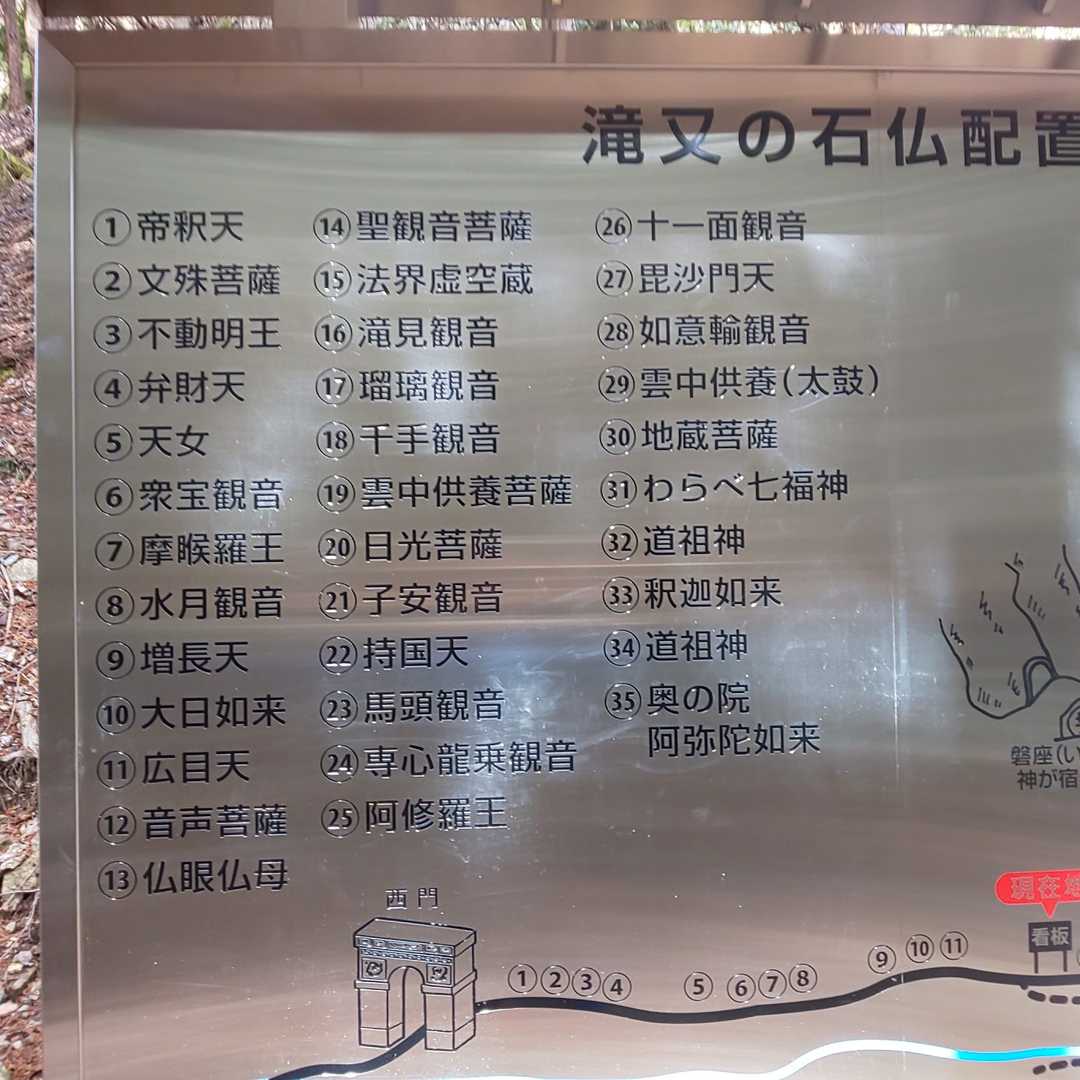 滝又の石仏配置
①帝釈天
②文殊菩薩
③不動明王
④弁財天
⑤天女
⑥衆宝観音
⑦摩睺羅王
⑧水月観音
⑨増長天
⑩大日如来
⑪広目天
⑫音声菩薩
⑬仏眼仏母
⑭聖観音菩薩
⑮法界虚空蔵
⑯滝見観音
⑰瑠璃観音
⑱千手観音
⑲雲中供養菩薩
⑳日光菩薩
㉑子安観音
㉒持国天
㉓馬頭観音
㉔専心龍乗観音
㉕阿修羅王
㉖十一面観音
㉗毘沙門天
㉘如意輪観音
㉙雲中供養(太鼓)
㉚地蔵菩薩
㉛わらべ七福神
㉜道祖神
㉝釈迦如来
㉞道祖神
㉟奥の院
阿弥陀如来
磐座(い
神が宿
西門
現在地
看板
①②③④ ⑤⑥⑦⑧ ⑨⑩⑪